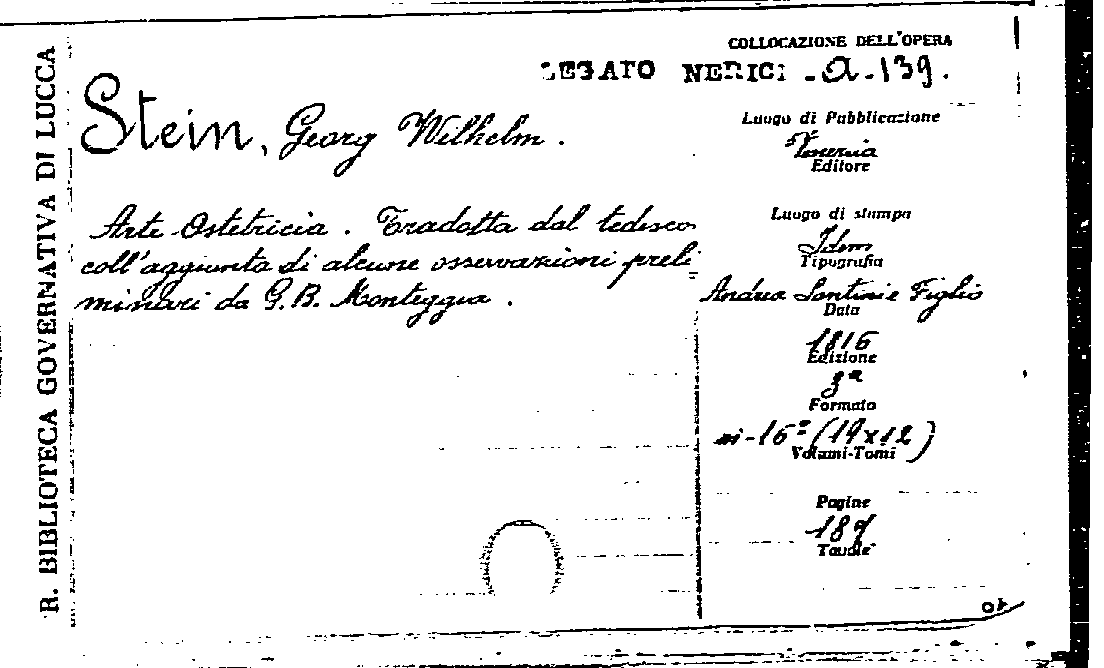 R. BIBLIOTECA GOVERNATIVA DI LUCCA
COLLOCAZIONE DELL'OPERA
LEGATO NERICI - A - 139.
Stein, Georg Wilhelm.
Arte Ostetricia. Tradotta dal tedesco
coll'aggiunta di alcune osservazioni preli=
minari da G. B. Monteggia.
Luogo di Pubblicazione
Venezia
Editore
Luogo di stampa
Idem
Tipografia
Andrea Santini e Figlio
Data
1816
Edizione
3ª
Formato
in-16º (19x12)
Volumi-Tomi
Pagine
Tavole